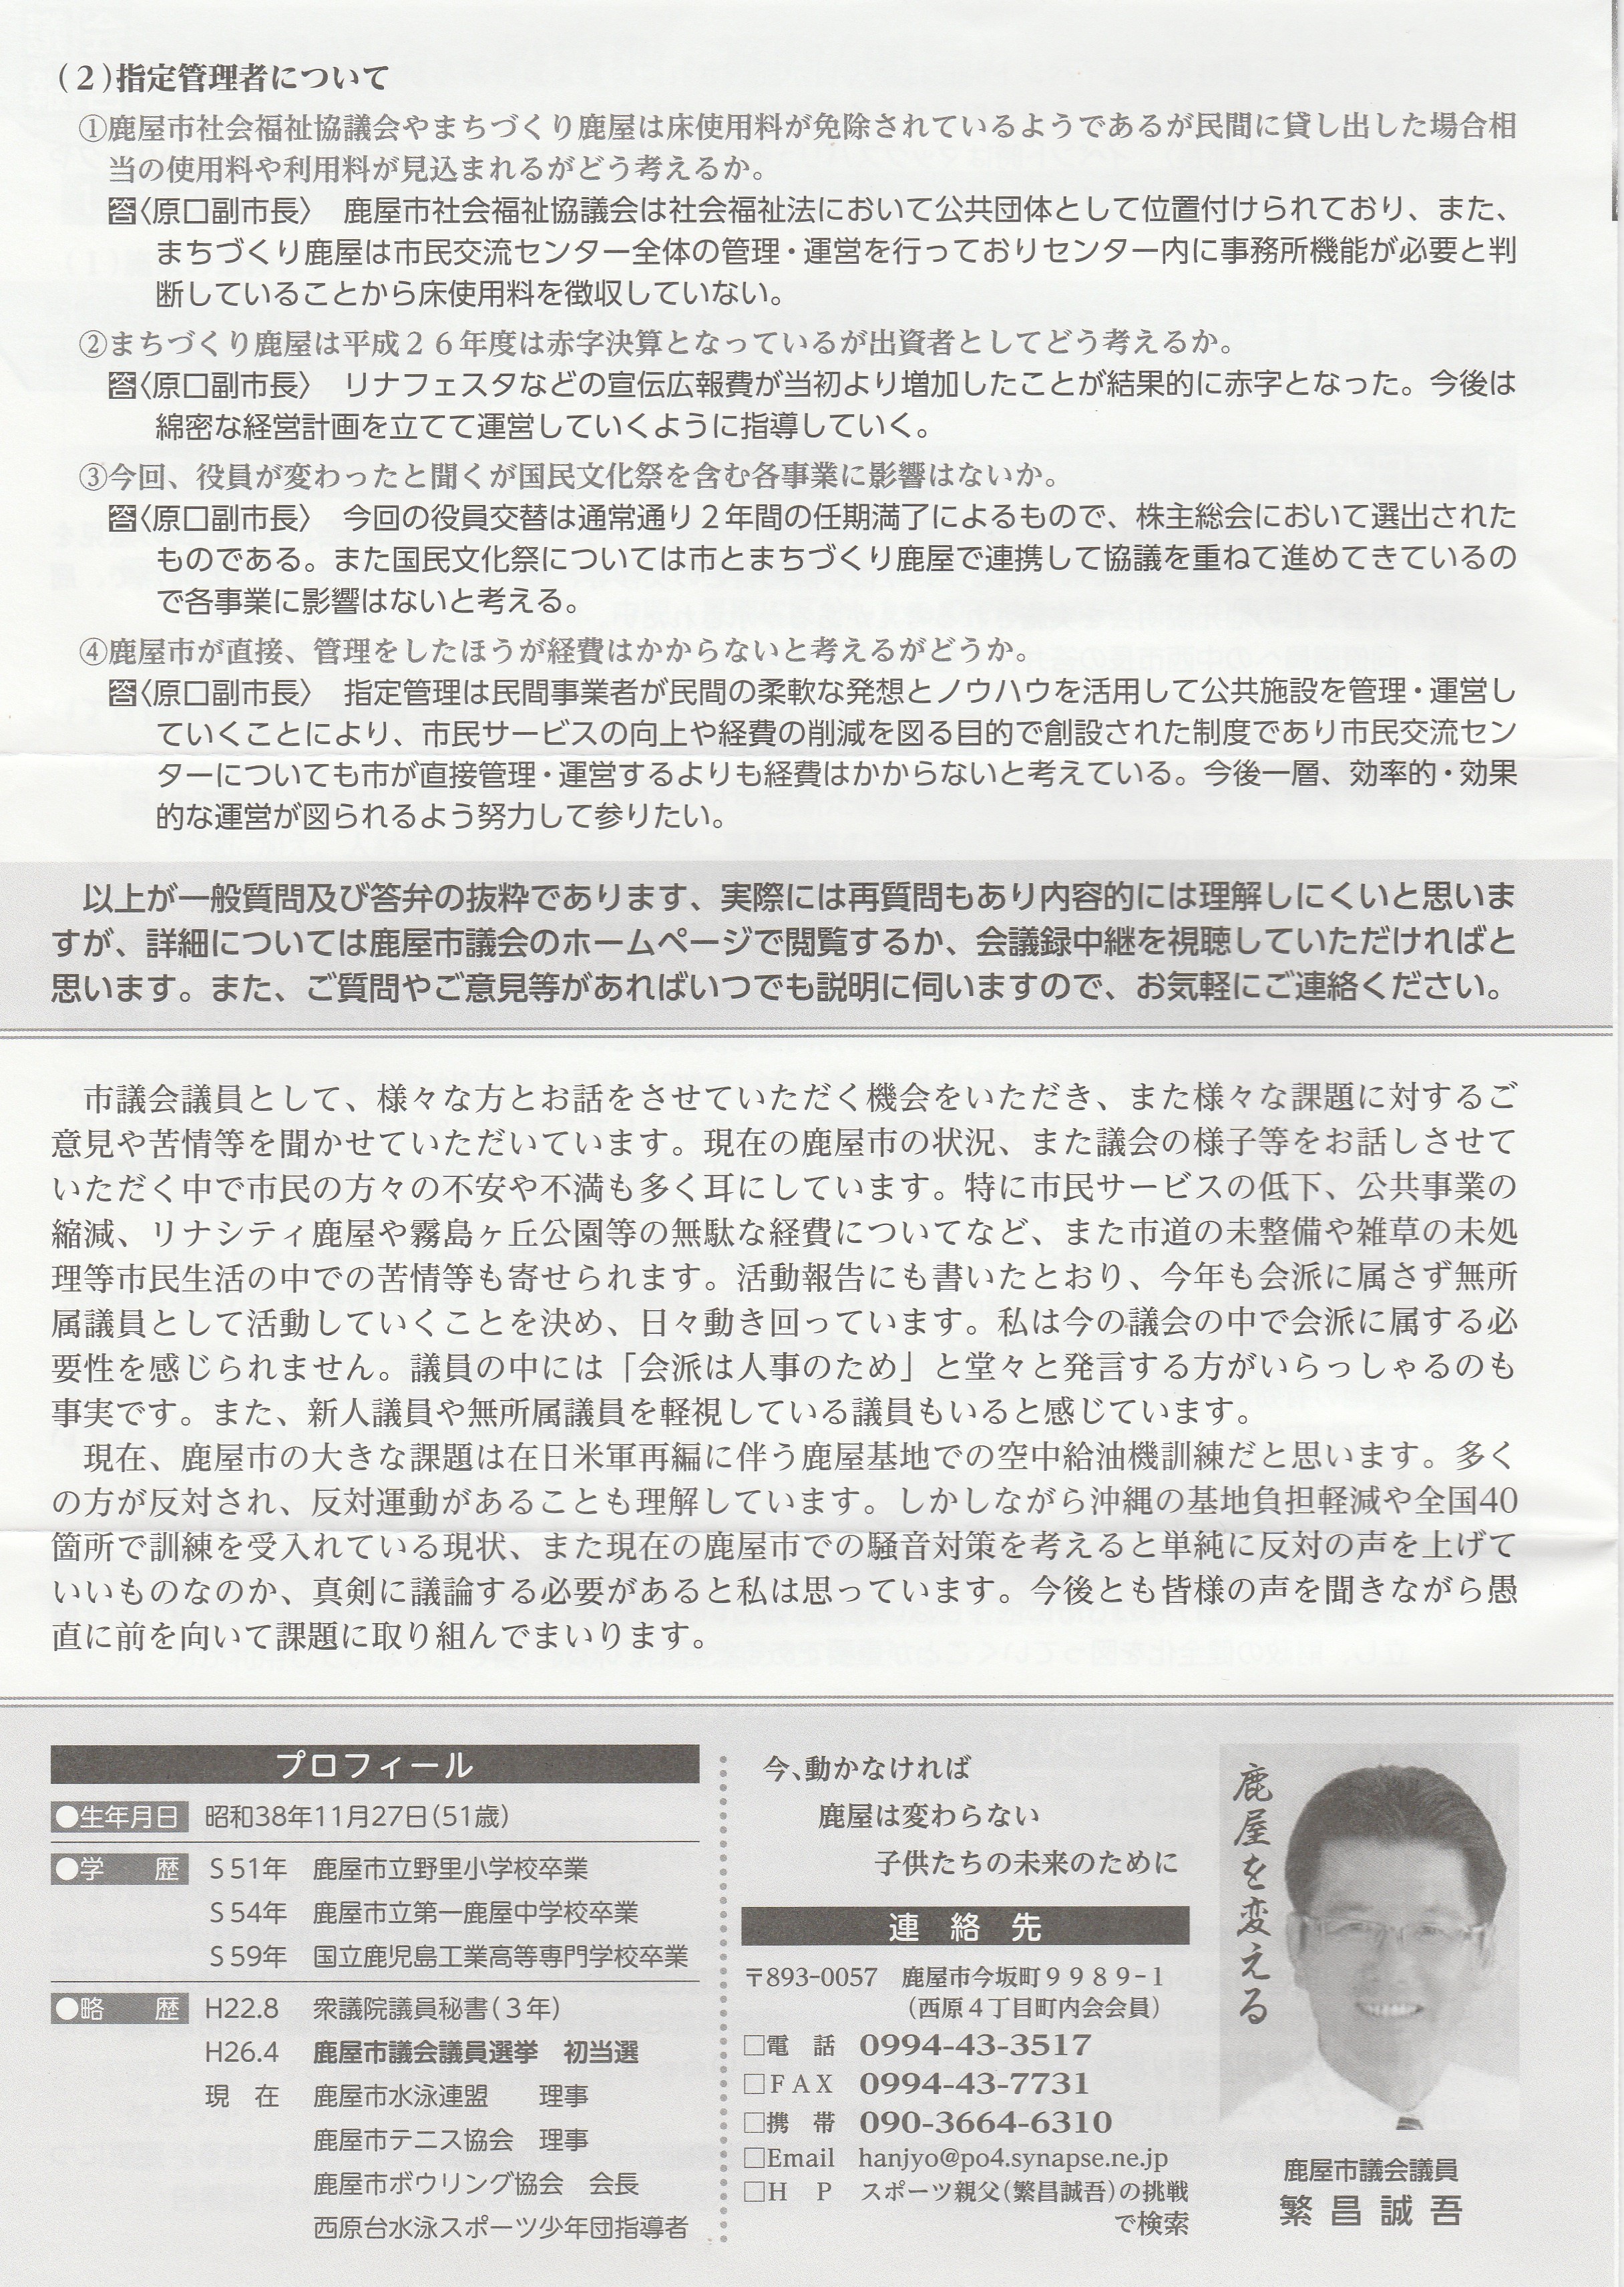 (２)指定管理者について
①鹿屋市社会福祉協議会やまちづくり鹿屋は床使用料が免除されているようであるが民間に貸し出した場合相
当の使用料や利用料が見込まれるがどう考えるか。
答〈原口副市長〉　鹿屋市社会福祉協議会は社会福祉法において公共団体として位置付けられており、また、
まちづくり鹿屋は市民交流センター全体の管理・運営を行っておりセンター内に事務所機能が必要と判
断していることから床使用料を徴収していない。
②まちづくり鹿屋は平成２６年度は赤字決算となっているが出資者としてどう考えるか。
答〈原口副市長〉　リナフェスタなどの宣伝広報費が当初より増加したことが結果的に赤字となった。今後は
綿密な経営計画を立てて運営していくように指導していく。
③今回、役員が変わったと聞くが国民文化祭を含む各事業に影響はないか。
答〈原口副市長〉　今回の役員交替は通常通り２年間の任期満了によるもので、株主総会において選出された
ものである。また国民文化祭については市とまちづくり鹿屋で連携して協議を重ねて進めてきているの
で各事業に影響はないと考える。
④鹿屋市が直接、管理をしたほうが経費はかからないと考えるがどうか。
答〈原口副市長〉　指定管理は民間事業者が民間の柔軟な発想とノウハウを活用して公共施設を管理・運営し
ていくことにより、市民サービスの向上や経費の削減を図る目的で創設された制度であり市民交流セン
ターについても市が直接管理・運営するよりも経費はかからないと考えている。今後一層、効率的・効果
的な運営が図られるよう努力して参りたい。
以上が一般質問及び答弁の抜粋であります、実際には再質問もあり内容的には理解しにくいと思いま
すが、詳細については鹿屋市議会のホームページで閲覧するか、会議録中継を視聴していただければと
思います。また、ご質問やご意見等があればいつでも説明に伺いますので、お気軽にご連絡ください。
市議会議員として、様々な方とお話をさせていただく機会をいただき、また様々な課題に対するご
意見や苦情等を聞かせていただいています。現在の鹿屋市の状況、また議会の様子等をお話しさせて
いただく中で市民の方々の不安や不満も多く耳にしています。特に市民サービスの低下、公共事業の
縮減、リナシティ鹿屋や霧島ヶ丘公園等の無駄な経費についてなど、また市道の未整備や雑草の未処
理等市民生活の中での苦情等も寄せられます。活動報告にも書いたとおり、今年も会派に属さず無所
属議員として活動していくことを決め、日々動き回っています。私は今の議会の中で会派に属する必
要性を感じられません。議員の中には「会派は人事のため」と堂々と発言する方がいらっしゃるのも
事実です。また、新人議員や無所属議員を軽視している議員もいると感じています。
現在、鹿屋市の大きな課題は在日米軍再編に伴う鹿屋基地での空中給油機訓練だと思います。多く
の方が反対され、反対運動があることも理解しています。しかしながら沖縄の基地負担軽減や全国40
箇所で訓練を受入れている現状、また現在の鹿屋市での騒音対策を考えると単純に反対の声を上げて
いいものなのか、真剣に議論する必要があると私は思っています。今後とも皆様の声を聞きながら愚
直に前を向いて課題に取り組んでまいります。
プロフィール
●生年月日　昭和38年11月27日(51歳)
●学　歴　S 51年　鹿屋市立野里小学校卒業
S 54年　鹿屋市立第一鹿屋中学校卒業
S 59年　国立鹿児島工業高等専門学校卒業
●略　歴　H22.8　衆議院議員秘書(３年)
H26.4　鹿屋市議会議員選挙　初当選
現　在　鹿屋市水泳連盟　理事
鹿屋市テニス協会　理事
鹿屋市ボウリング協会　会長
西原台水泳スポーツ少年団指導者
今、動かなければ
鹿屋は変わらない
子供たちの未来のために
連　絡　先
〒893-0057　鹿屋市今坂町９９８９-１
(西原４丁目町内会会員)
□電　話　0994-43-3517
□ＦＡＸ　0994-43-7731
□携　帯　090-3664-6310
□Email　hanjyo@po4.synapse.ne.jp
□Ｈ　Ｐ　スポーツ親父(繁昌誠吾)の挑戦
で検索
鹿屋を変える
鹿屋市議会議員
繁昌誠吾